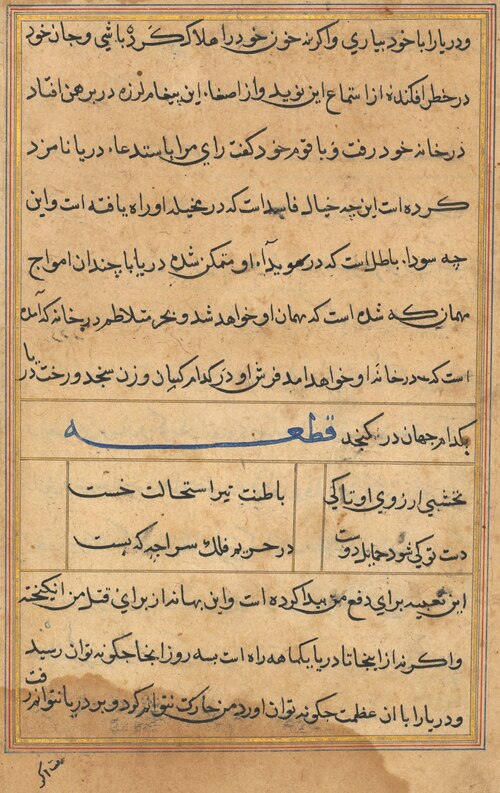 ودریا را با خود بیاری واکر نه خون خود را هلاک کرده باشی و جان خود
در خطر افکنده از استماع این نوید و از اصغاء این پیغام لرزه در برهمن افتاد
در خانه خود رفت و با قوم خود کفت رای مرا باستدعاء دریا نامزد
کرده است این چه خیال فاسد است که در مخیله او راه یافته است و این
چه سوداء باطل است که در هویداء او متمکن شده دریا با چندان امواج
مهمان که شده است که مهمان او خواهد شد و بحر متلاطم در خانه که آمده
است که در خانه او خواهد آمد فرش او در کدام کیان وزن سنجد و رخت دریا
بکدام جهان در کنجد قطعه
نخشبی ارزوی او تا کی باطنت تیر استحالت خست
دست تو کی شود حمایل دوست در حریم فلک سراچه که بست
این تعبیه برای دفع من پیدا کرده است و این بهانه از برای قتل من انکیخته
واکر نه از اینجا تا دریا یکماهه راه است بسه روز انجا چکونه توان رسید
و دریا را با ان عظمت چکونه توان اورد من حرکت نتوانم کرد و بر دریا نتوانم رفت